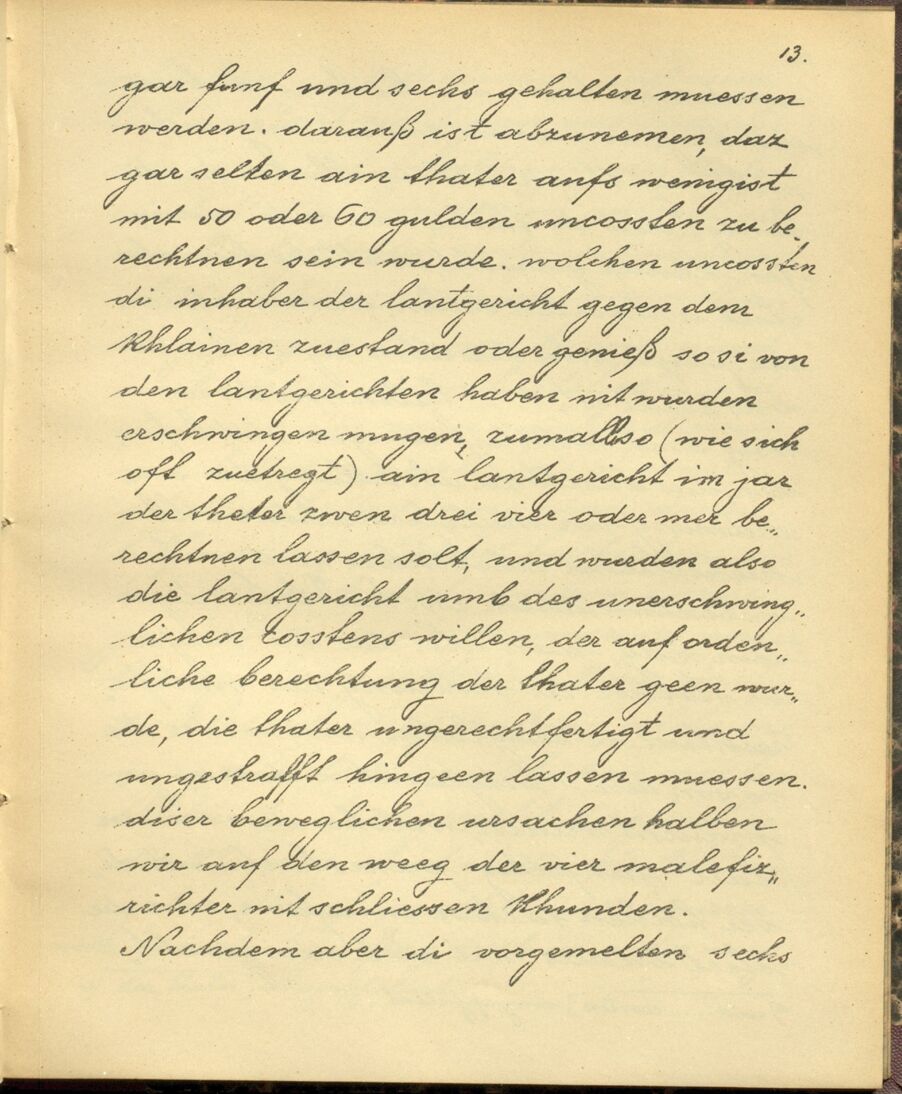 13.
gar funf und sechs gehalten muessen
werden. darauß ist abzunemen, daz
gar selten ain thater aufs wenigist
mit 50 oder 60 gulden uncossten zu be„
rechtnen sein wurde. wolchen uncossten
di inhaber der lantgericht gegen dem
khlainen zuestand oder genieß so si von
den lantgerichten haben nit wurden
erschwingen mugen, zumall so (wie sich
oft zuetregt) ain lantgericht im jar
der theter zwen drei vier oder mer be„
rechtnen lassen solt, und wurden also
die lantgericht umb des unerschwing„
lichen cosstens willen, der auf orden„
liche berechtung der thater geen wur„
de, die thater ungerechtfertigt und
ungestrafft hingeen lassen muessen.
diser beweglichen ursachen halben
wir auf den weeg der vier malefiz„
richter nit schliessen khunden.
Nachdem aber di vorgemelten sechs